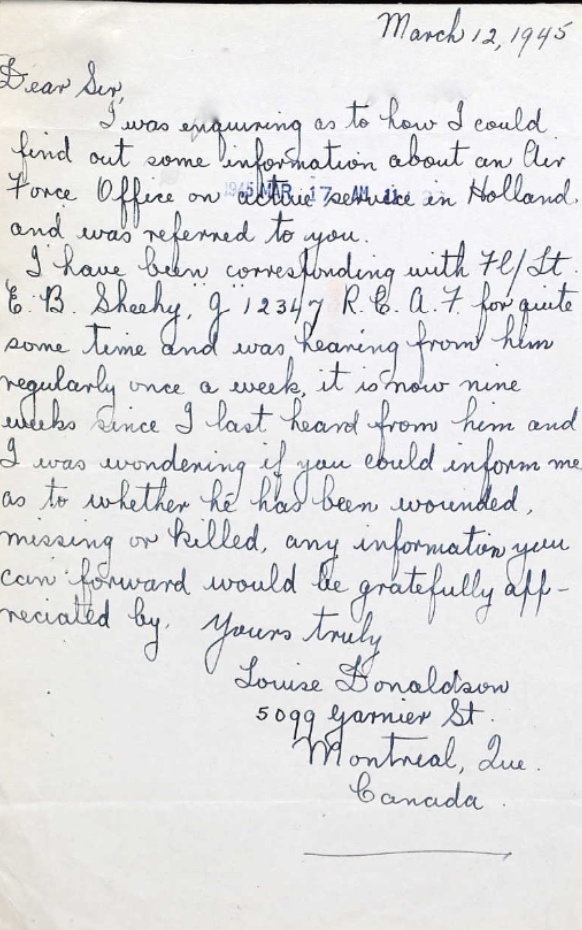 March 12, 1945
Dear Sir,
I was enquiring as to how I could
find out some information about an Air
Force Office on active service in Holland
1945 MAR 17 AM
and was referred to you.
I have been corresponding with Fl/Lt.
E. B. Sheehy, J 12347 R.C.A.F. for quite
some time and was hearing from him
regularly once a week, it is now nine
weeks since I last heard from him and
I was wondering if you could inform me
as to whether he has been wounded,
missing or killed, any information you
can forward would be gratefully app-
reciated by. Yours truly
Louise Donaldson
5099 Garnier St.
Montreal, Que.
Canada.